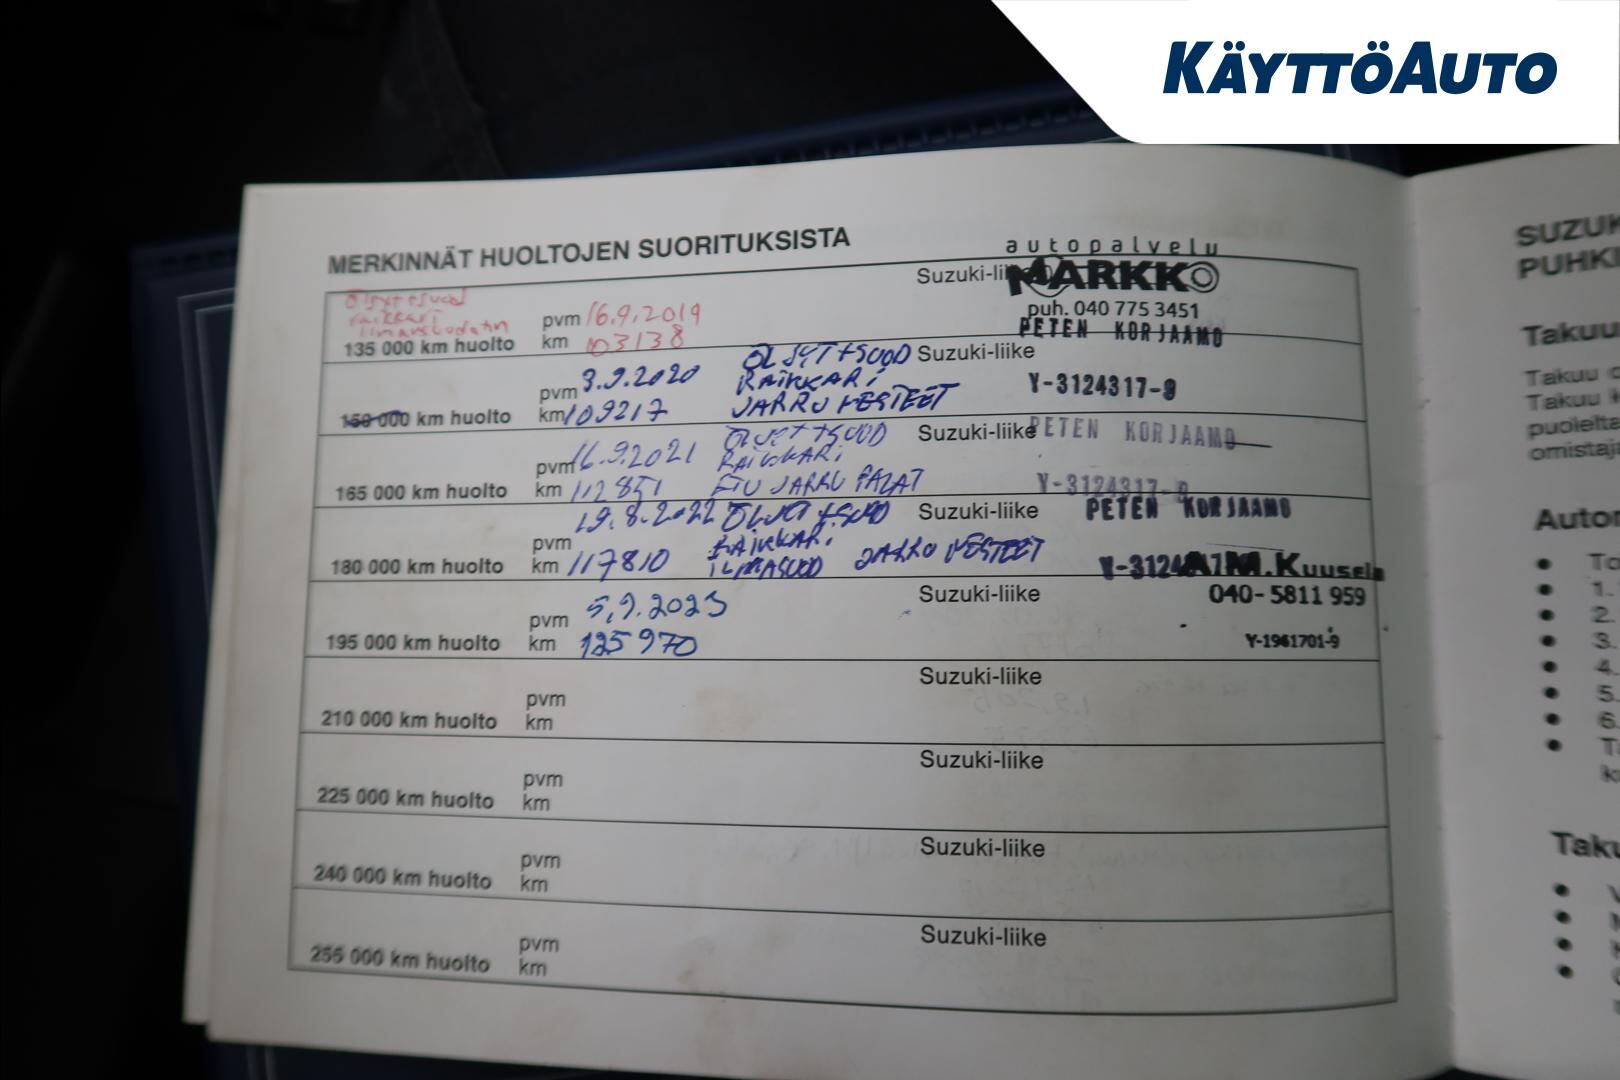 KÄYTTÖAUTO
MERKINNÄT HUOLTOJEN SUORITUKSISTA
autopalvelu
Suzuki-liike MARKKO
puh. 040 775 3451
135 000 km huolto
pvm 16.9.2019
km 103138
PETEN KORJAAMO
150 000 km huolto
pvm 3.9.2020
km 109217
ÖLJYT+SUOD
RAIKKARI
JARRU NESTEET
Suzuki-liike
Y-3124317-9
165 000 km huolto
pvm 16.9.2021
km 112851
ÖLJYT+SUOD
RAIKKARI
ETU JARRU PALAT
Suzuki-liike
PETEN KORJAAMO
Y-3124317-9
180 000 km huolto
pvm 19.8.2022
km 117810
ÖLJYT+SUOD
RAIKKARI
ILMASUOD JARRU NESTEET
Suzuki-liike
PETEN KORJAAMO
A.M.Kuusela
195 000 km huolto
pvm 5.9.2023
km 125970
Suzuki-liike
040-5811 959
Y-1961701-9
210 000 km huolto
pvm
km
Suzuki-liike
225 000 km huolto
pvm
km
Suzuki-liike
240 000 km huolto
pvm
km
Suzuki-liike
255 000 km huolto
pvm
km
Suzuki-liike
Takuu
omistaj
1.
2.
3.
4.
5.
6.